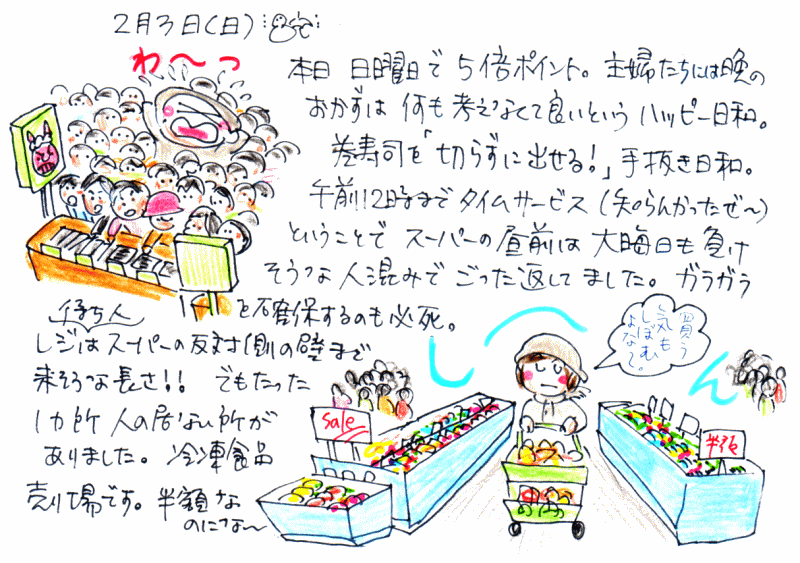 2月3日(日)
わ〜っ
本日 日曜日で 5倍ポイント。主婦たちには晩の
おかずは 何も考えなくて良いという ハッピー日和。
巻寿司を「切らずに出せる!」手抜き日和。
午前12時まで タイムサービス (知らんかったぜ〜)
ということで スーパーの昼前は 大晦日も負け
そうな人混みで ごった返してました。ガラガラ
を確保するのも必死。
待ち人
レジはスーパーの反対側の壁まで
来そうな長さ!! でもたった
1カ所 人の居ない所が
ありました。冷凍食品
売り場です。半額な
のにな〜
し〜ん
買う
気も
しぼむ
よな〜。
sale
半額